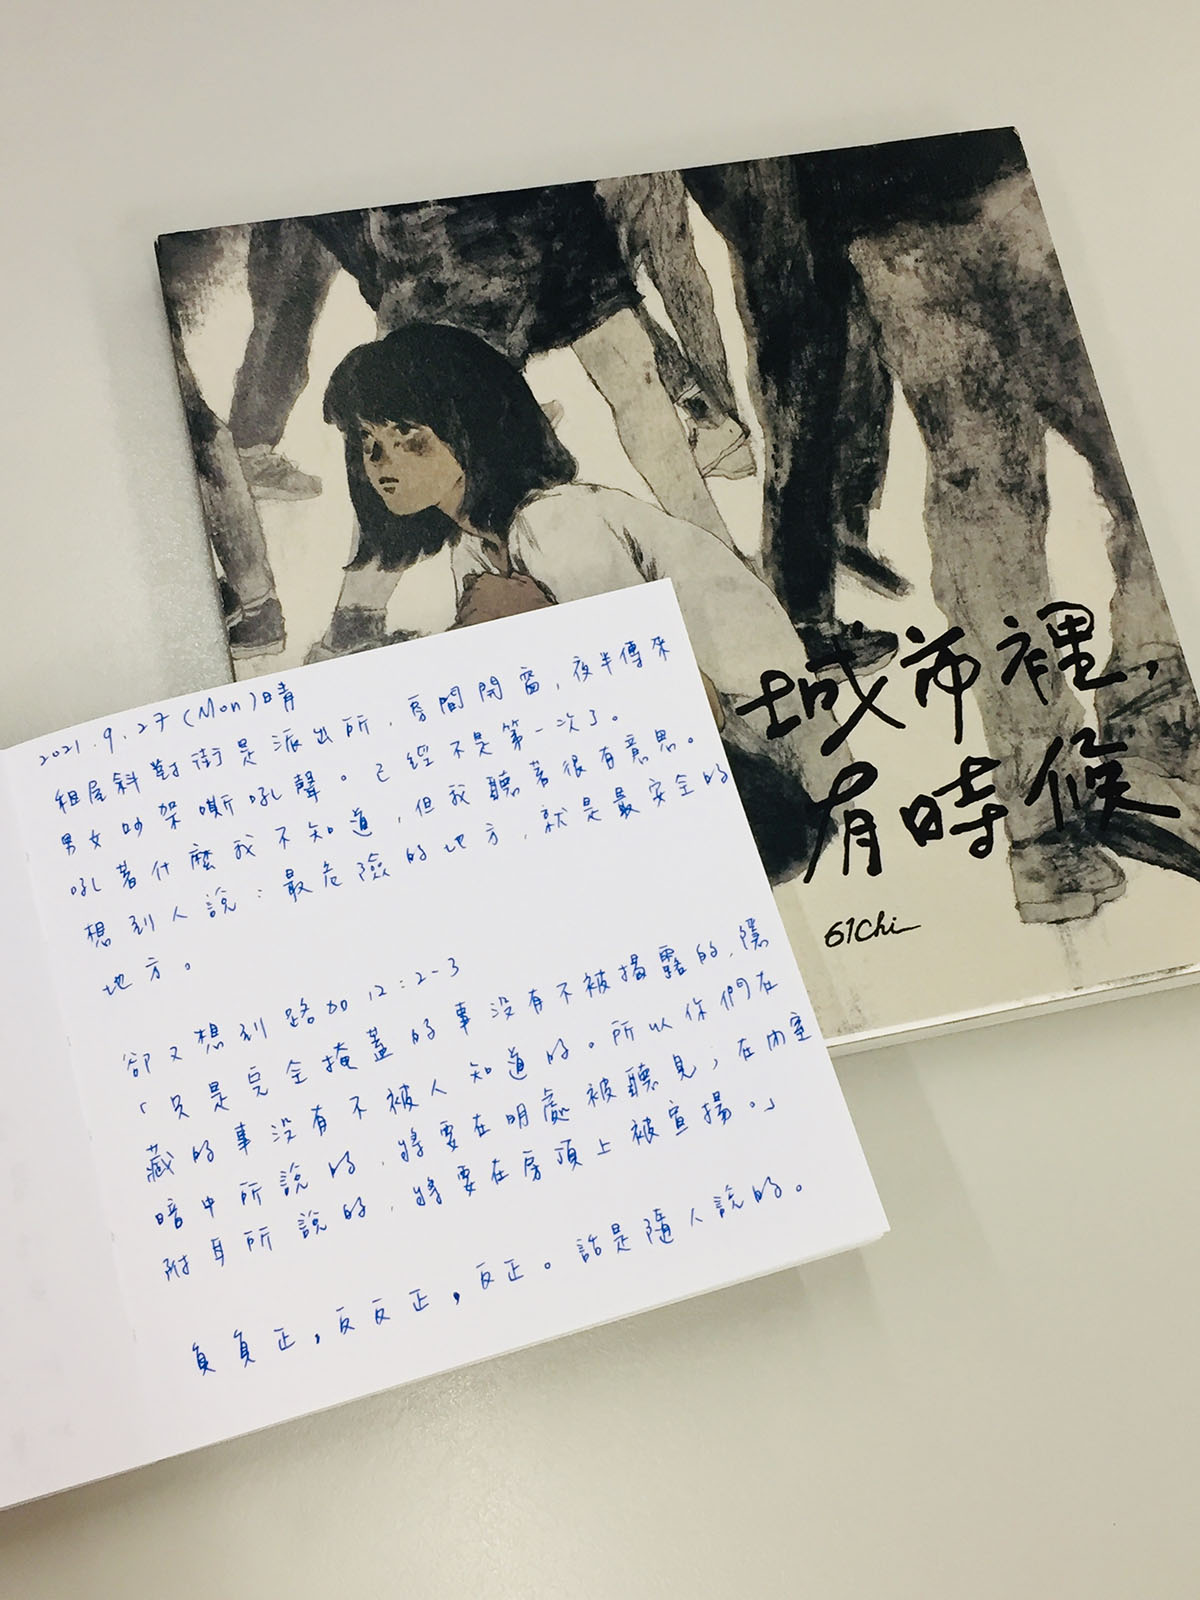 城市裡，
有時候
61Chi
2021.9.27(Mon)晴
租屋斜對街是派出所，房間開窗，夜半傳來
男女吵架嘶吼聲。已經不是第一次了。
吼著什麼我不知道，但我聽著很有意思。
想到人說：最危險的地方，就是最安全的
地方。
卻又想到路加12：2-3
「只是完全掩蓋的事沒有不被揭露的，隱
藏的事沒有不被人知道的。所以你們在
暗中所說的，將要在明處被聽見；在內室
附耳所說的，將要在房頂上被宣揚。」
負負正，反反正，反正。話是隨人說的。